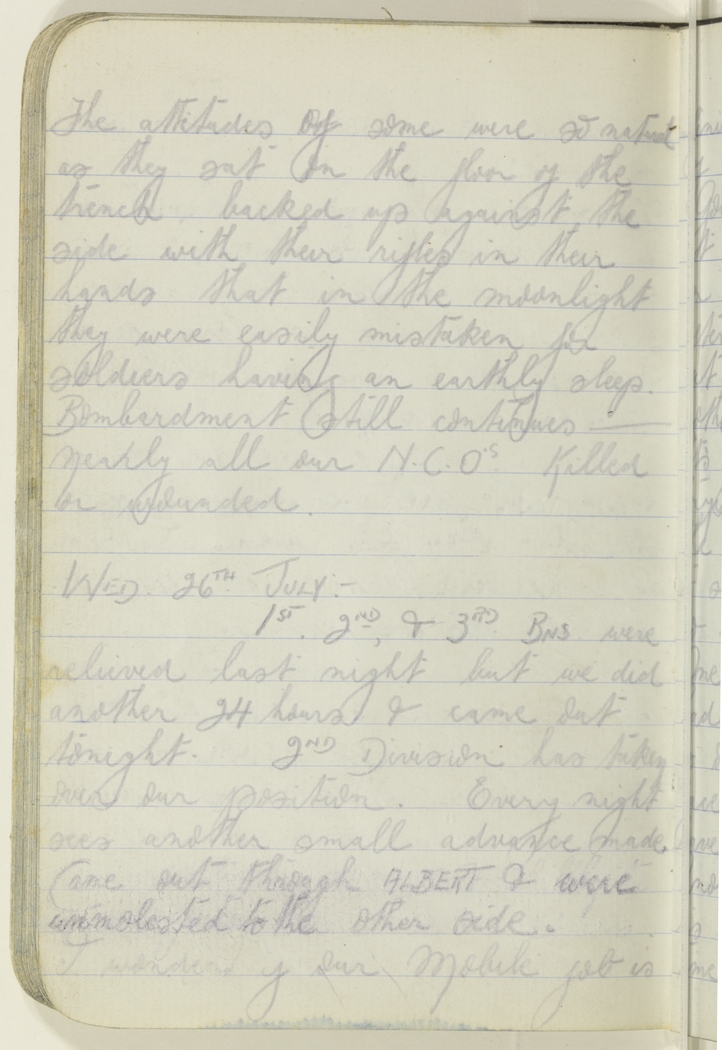 The attitudes of some were so natural
as they sat on the floor of the
trench, backed up against the
side with their rifles in their
hands that in the moonlight
they were easily mistaken for
soldiers having an earthly sleep.
Bombardment still continues —
nearly all our N.C.O's Killed
or wounded.
WED. 26TH JULY:-
1ST, 2ND, & 3RD BNS were
relieved last night but we did
another 24 hours & came out
tonight. 2ND Division has taken
over our position. Every night
sees another small advance made.
Came out through ALBERT & were
unmolested to the other side.
I wonder if our Mobile job is